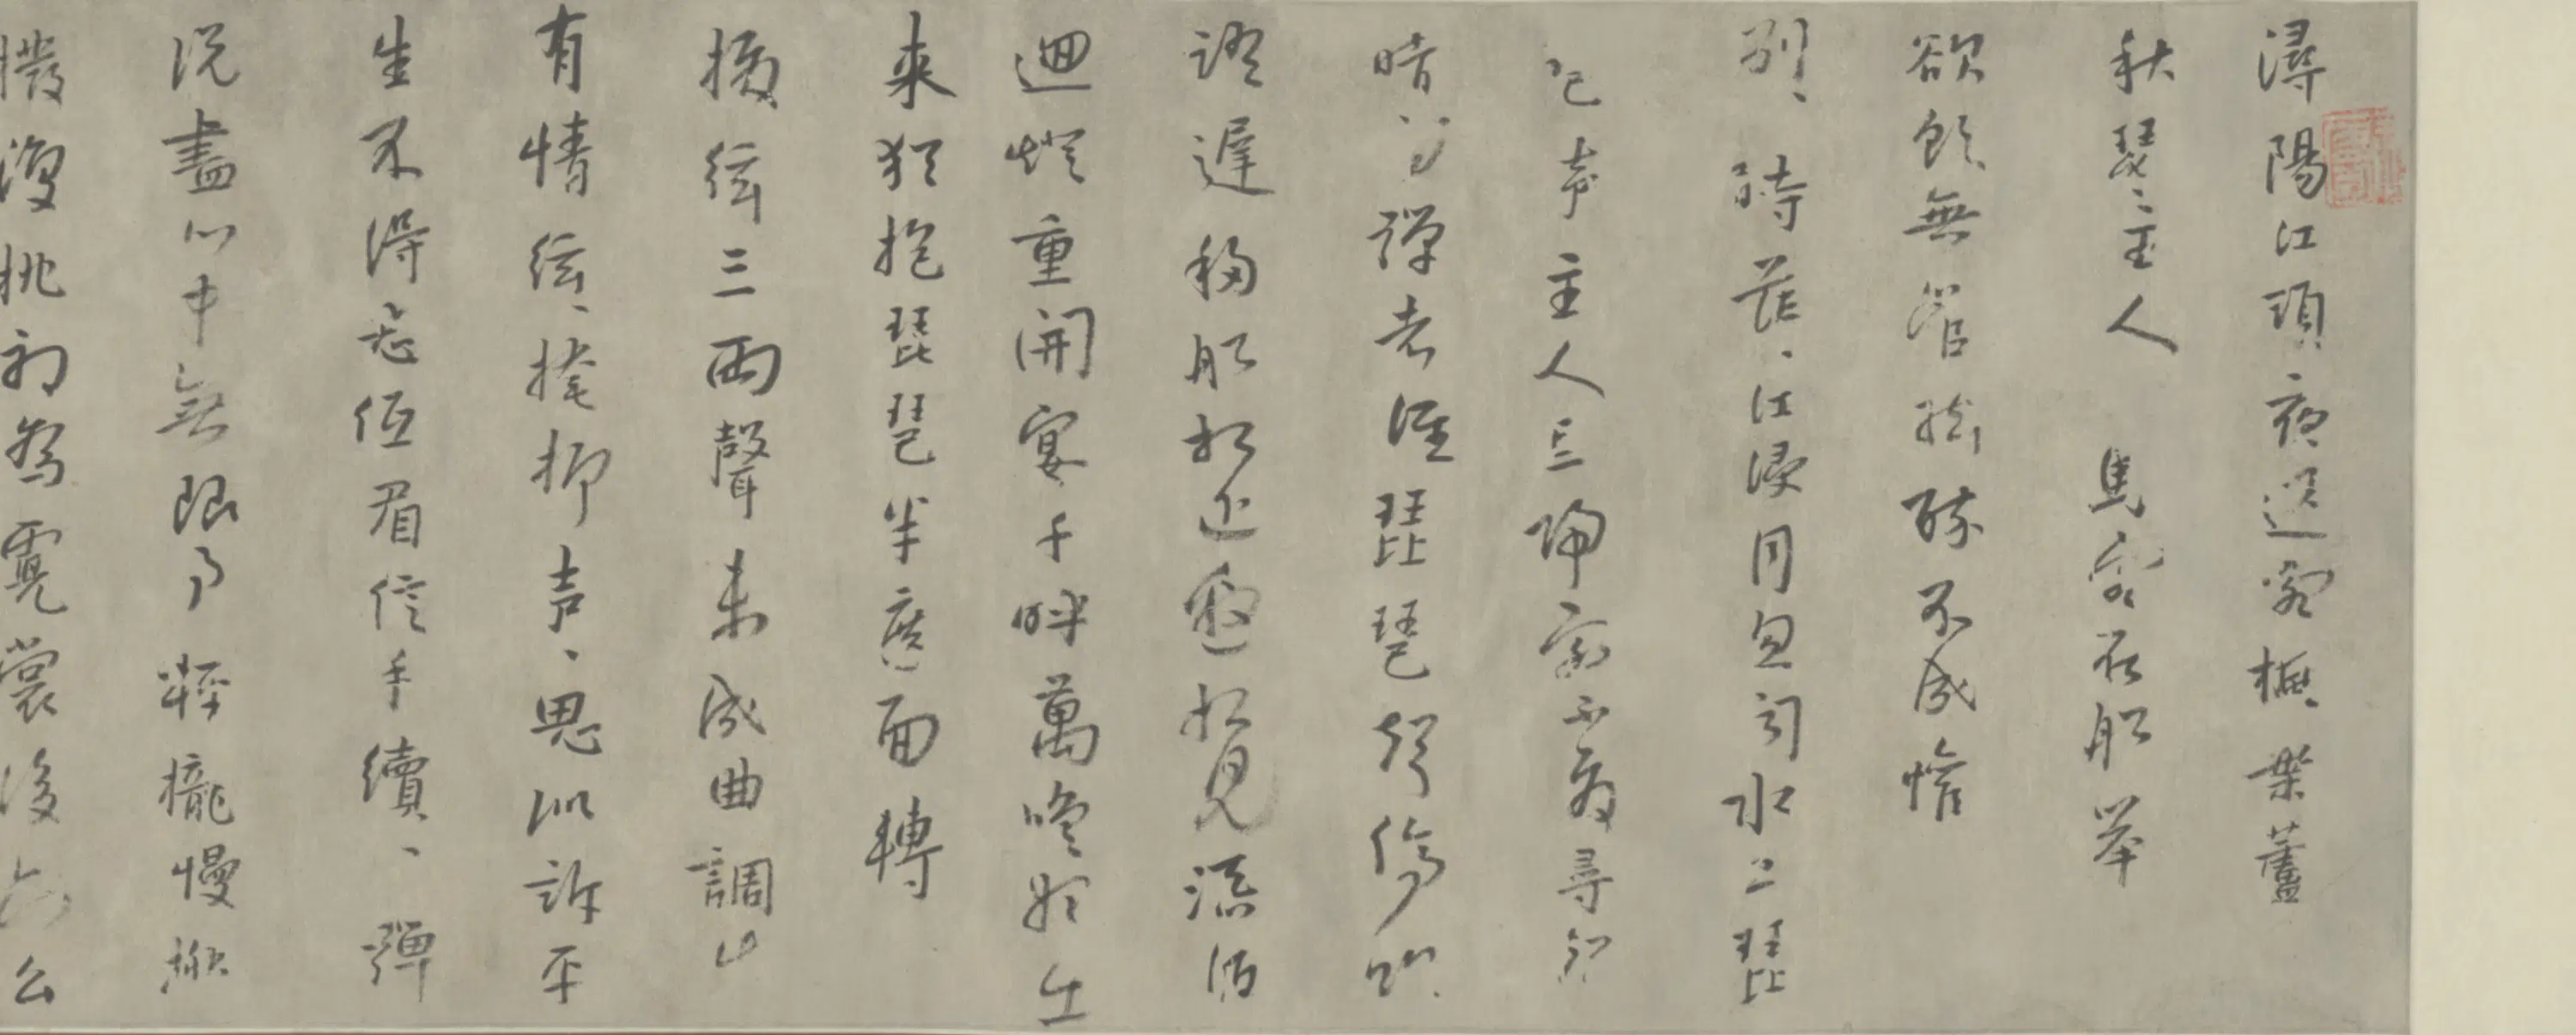 潯陽江頭夜送客楓葉蘆
秋瑟、主人 馬客在船舉
欲飲無管絃醉不成慘
別、時茫、江浸月忽聞水上琵
琶声主人忘歸客不發尋聲
暗問彈者誰琵琶聲停欲
語遲移船相近邀相見添酒
迴燈重開宴千呼萬喚始出
来猶抱琵琶半遮面轉
撥絃三兩聲未成曲調先
有情絃、掩抑声、思似訴平
生不得志低眉信手續、彈
説盡心中無限事輕攏慢撚
撥復挑初為霓裳後六么